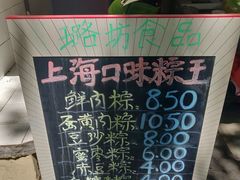 璐坊食品
上海口味粽王
鲜肉粽 8.50
蛋黄肉粽 10.50
豆沙粽 8.00
蜜枣粽 6.00
4.00